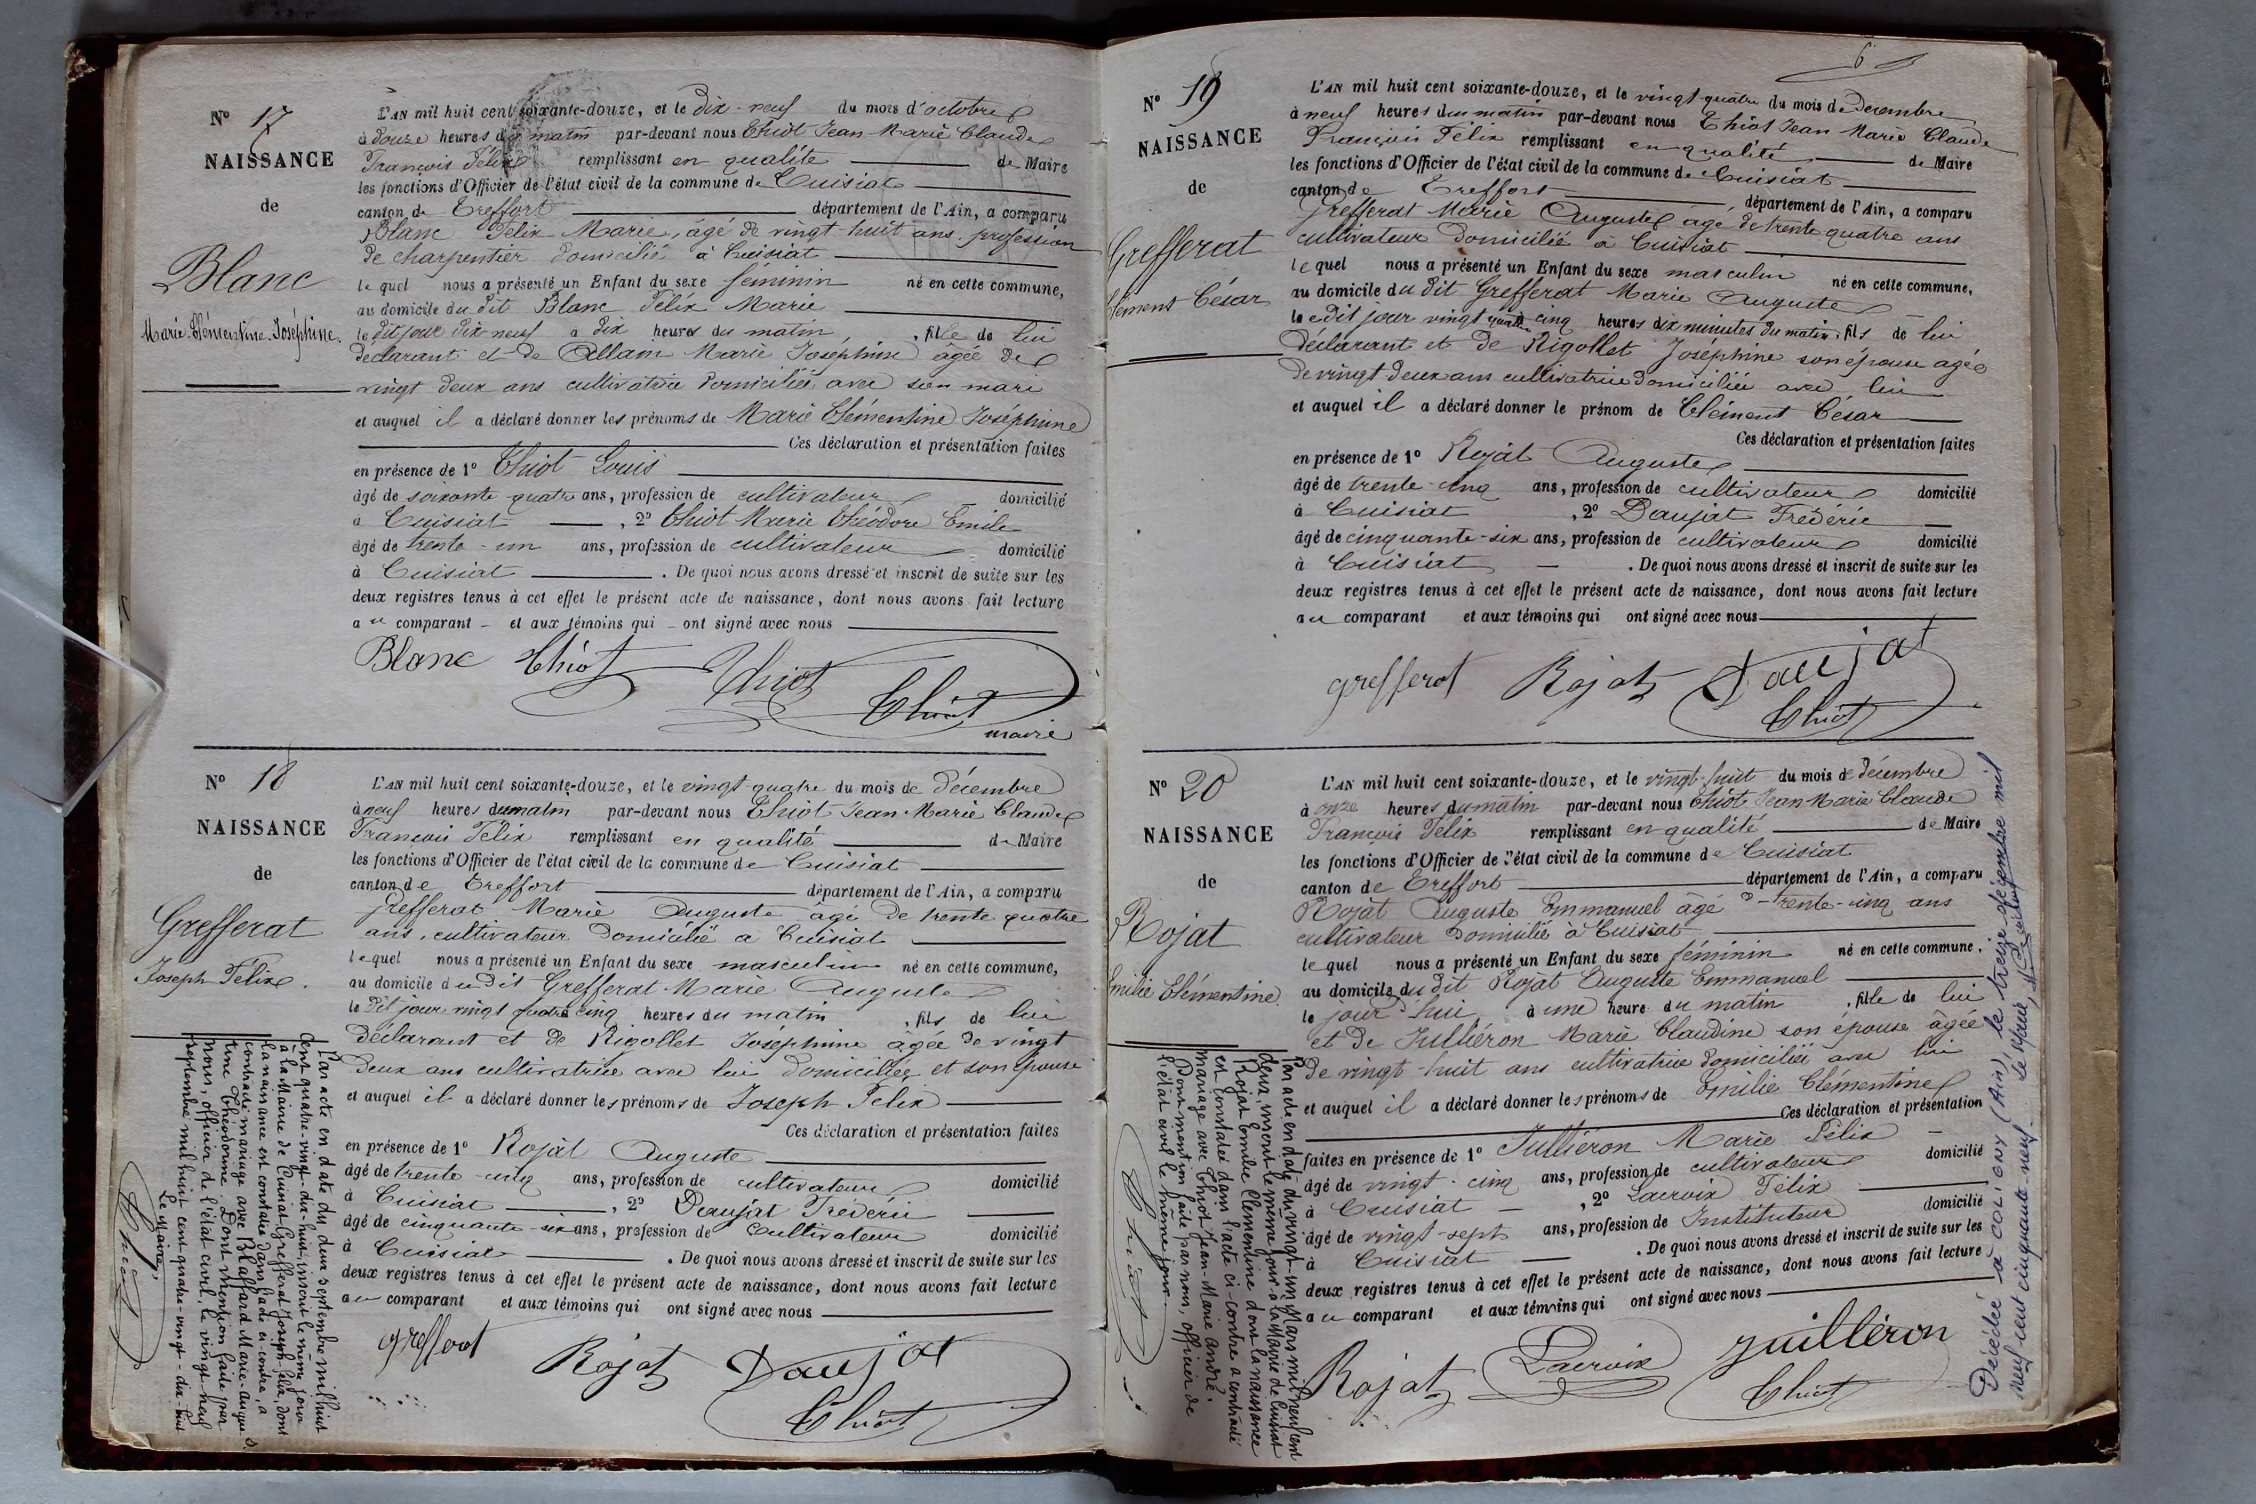 N° 17
NAISSANCE
de
Blanc
Marie Clémentine Joséphine.
L'AN mil huit cent soixante-douze, et le dix-neuf du mois d'octobre
à douze heures du matin par-devant nous Thiot Jean Marie Claude
François Félix remplissant en qualité de Maire
les fonctions d'Officier de l'état civil de la commune de Cuisiat
canton de Treffort département de l'Ain, a comparu
Blanc Félix Marie, âgé de vingt-huit ans profession
de charpentier domicilié à Cuisiat
lequel nous a présenté un Enfant du sexe féminin né en cette commune,
au domicile du dit Blanc Félix Marie
le dit jour dix neuf à dix heures du matin, fille de lui
déclarant et de Allam Marie Joséphine âgée de
vingt deux ans cultivatrice domiciliée avec son mari
et auquel il a déclaré donner les prénoms de Marie Clémentine Joséphine
Ces déclaration et présentation faites
en présence de 1° Thiot Louis
âgé de soixante-quatre ans, profession de cultivateur domicilié
à Cuisiat, 2° Thiot Marie Théodore Emile
âgé de trente-un ans, profession de cultivateur domicilié
à Cuisiat. De quoi nous avons dressé et inscrit de suite sur les
deux registres tenus à cet effet le présent acte de naissance, dont nous avons fait lecture
au comparant et aux témoins qui ont signé avec nous
Blanc Thiot Thiot Thiot
maire
N° 18
NAISSANCE
de
Grefferat
Joseph Félix.
L'AN mil huit cent soixante-douze, et le vingt-quatre du mois de décembre
à neuf heures du matin par-devant nous Thiot Jean Marie Claude
François Félix remplissant en qualité de Maire
les fonctions d'Officier de l'état civil de la commune de Cuisiat
canton de Treffort département de l'Ain, a comparu
Grefferat Marie Auguste âgé de trente quatre
ans, cultivateur domicilié à Cuisiat
lequel nous a présenté un Enfant du sexe masculin né en cette commune,
au domicile du dit Grefferat Marie Auguste
le dit jour vingt quatre cinq heures du matin, fils de lui
déclarant et de Rigollet Joséphine âgée de vingt
deux ans cultivatrice avec lui domiciliée et son épouse
et auquel il a déclaré donner les prénoms de Joseph Félix
Ces déclaration et présentation faites
en présence de 1° Rojat Auguste
âgé de trente-cinq ans, profession de cultivateur domicilié
à Cuisiat, 2° Daujat Fréderic
âgé de cinquante-six ans, profession de cultivateur domicilié
à Cuisiat. De quoi nous avons dressé et inscrit de suite sur les
deux registres tenus à cet effet le présent acte de naissance, dont nous avons fait lecture
au comparant et aux témoins qui ont signé avec nous
grefferat Rojat Daujat
Thiot
Par acte en date du deux septembre mil huit
Cent quatre-vingt-dix-huit inscrit le même jour
à la Mairie de Cuisiat Grefferat Joseph-félix, dont
la naissance est constatée dans l'acte ci-contre, a
contracté mariage avec Blaffard Marie-Augus-
tine Théodorine. Dont mention faite par
nous, officier de l'état civil, le vingt-neuf
septembre mil huit cent quatre-vingt-dix-huit
Le Maire,
Thiot
6
N° 19
NAISSANCE
de
Grefferat
Clément César
L'AN mil huit cent soixante-douze, et le vingt-quatre du mois de décembre
à neuf heures du matin par-devant nous Thiot Jean Marie Claude
François Félix remplissant en qualité de Maire
les fonctions d'Officier de l'état civil de la commune de Cuisiat
canton de Treffort, département de l'Ain, a comparu
Grefferat Marie Auguste âgé de trente quatre ans
cultivateur domicilié à Cuisiat
lequel nous a présenté un Enfant du sexe masculin né en cette commune,
au domicile du dit Grefferat Marie Auguste
le dit jour vingt quatre cinq heures dix minutes du matin, fils de lui
déclarant et de Rigollet Joséphine son épouse agée
de vingt deux ans cultivatrice domiciliée avec lui
et auquel il a déclaré donner le prénom de Clément César
Ces déclaration et présentation faites
en présence de 1° Rojat Auguste
âgé de trente-cinq ans, profession de cultivateur domicilié
à Cuisiat, 2° Daujat Fréderic
âgé de cinquante-six ans, profession de cultivateur domicilié
à Cuisiat. De quoi nous avons dressé et inscrit de suite sur les
deux registres tenus à cet effet le présent acte de naissance, dont nous avons fait lecture
au comparant et aux témoins qui ont signé avec nous
grefferat Rojat Daujat
Thiot
N° 20
NAISSANCE
de
Rojat
Emilie Clémentine.
L'AN mil huit cent soixante-douze, et le vingt-huit du mois de décembre
à onze heures du matin par-devant nous Thiot Jean Marie Claude
François Félix remplissant en qualité de Maire
les fonctions d'Officier de l'état civil de la commune de Cuisiat
canton de Treffort département de l'Ain, a comparu
Rojat Auguste Emmanuel âgé de trente-cinq ans
cultivateur domicilié à Cuisiat
lequel nous a présenté un Enfant du sexe féminin né en cette commune.
au domicile du dit Rojat Auguste Emmanuel
le jour d'hui à une heure du matin, fille de lui
et de Julliéron Marie Claudine son épouse âgée
de vingt-huit ans cultivatrice domiciliée avec lui
et auquel il a déclaré donner les prénoms de Emilie Clémentine
Ces déclaration et présentation
faites en présence de 1° Julliéron Marie Félix
âgé de vingt-cinq ans, profession de cultivateur domicilié
à Cuisiat, 2° Lacroix Félix
âgé de vingt-sept ans, profession de Instituteur domicilié
à Cuisiat. De quoi nous avons dressé et inscrit de suite sur les
deux registres tenus à cet effet le présent acte de naissance, dont nous avons fait lecture
au comparant et aux témoins qui ont signé avec nous
Rojat Lacroix juilléron
Thiot
Par acte en date du vingt-un Mars mil neuf cent
deux inscrit le même jour à la Mairie de Cuisiat
Rojat Emilie Clémentine dont la naissance
est constatée dans l'acte ci-contre a contracté
mariage avec Thiot Jean-Marie André.
Dont mention faite par nous, officier de
l'état civil le même jour.
Thiot
Décédée à COLIGNY (Ain), le treize décembre mil
neuf cent cinquante-neuf. Le Maire,